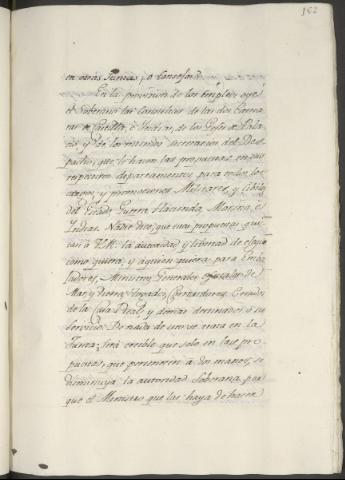 152
en otras Juntas, o
En la provision de los empleos oye
el Soberano las Consultas de las dos Camaras
de Castilla, è Indias, de los Gefes de Palacio
y de los mismos Secretarios del Despacho,
que le hacen las propuestas en sus
respectivos departamentos para todos los
cargos, y promociones Militares, y Civiles
del Estado, Guerra, Hacienda, Marina, è
Indias. Nadie dice, que estas propuestas qui
tan à V.M. la autoridad y libertad de elegir
como quiera, y à quien quiera para Emba
xadores, Ministros, Generales, Oficiales de
Mar, y Tierra, Togados, Corregidores, Criados
de la Casa Real, y demàs destinados à su
servicio. De nada de eso se trata en la
Junta; serà creible que solo en las pro
puestas, que pertenecen à dos manos, se
disminuya la autoridad Soberana, por
que el Ministro que las haya de hacer